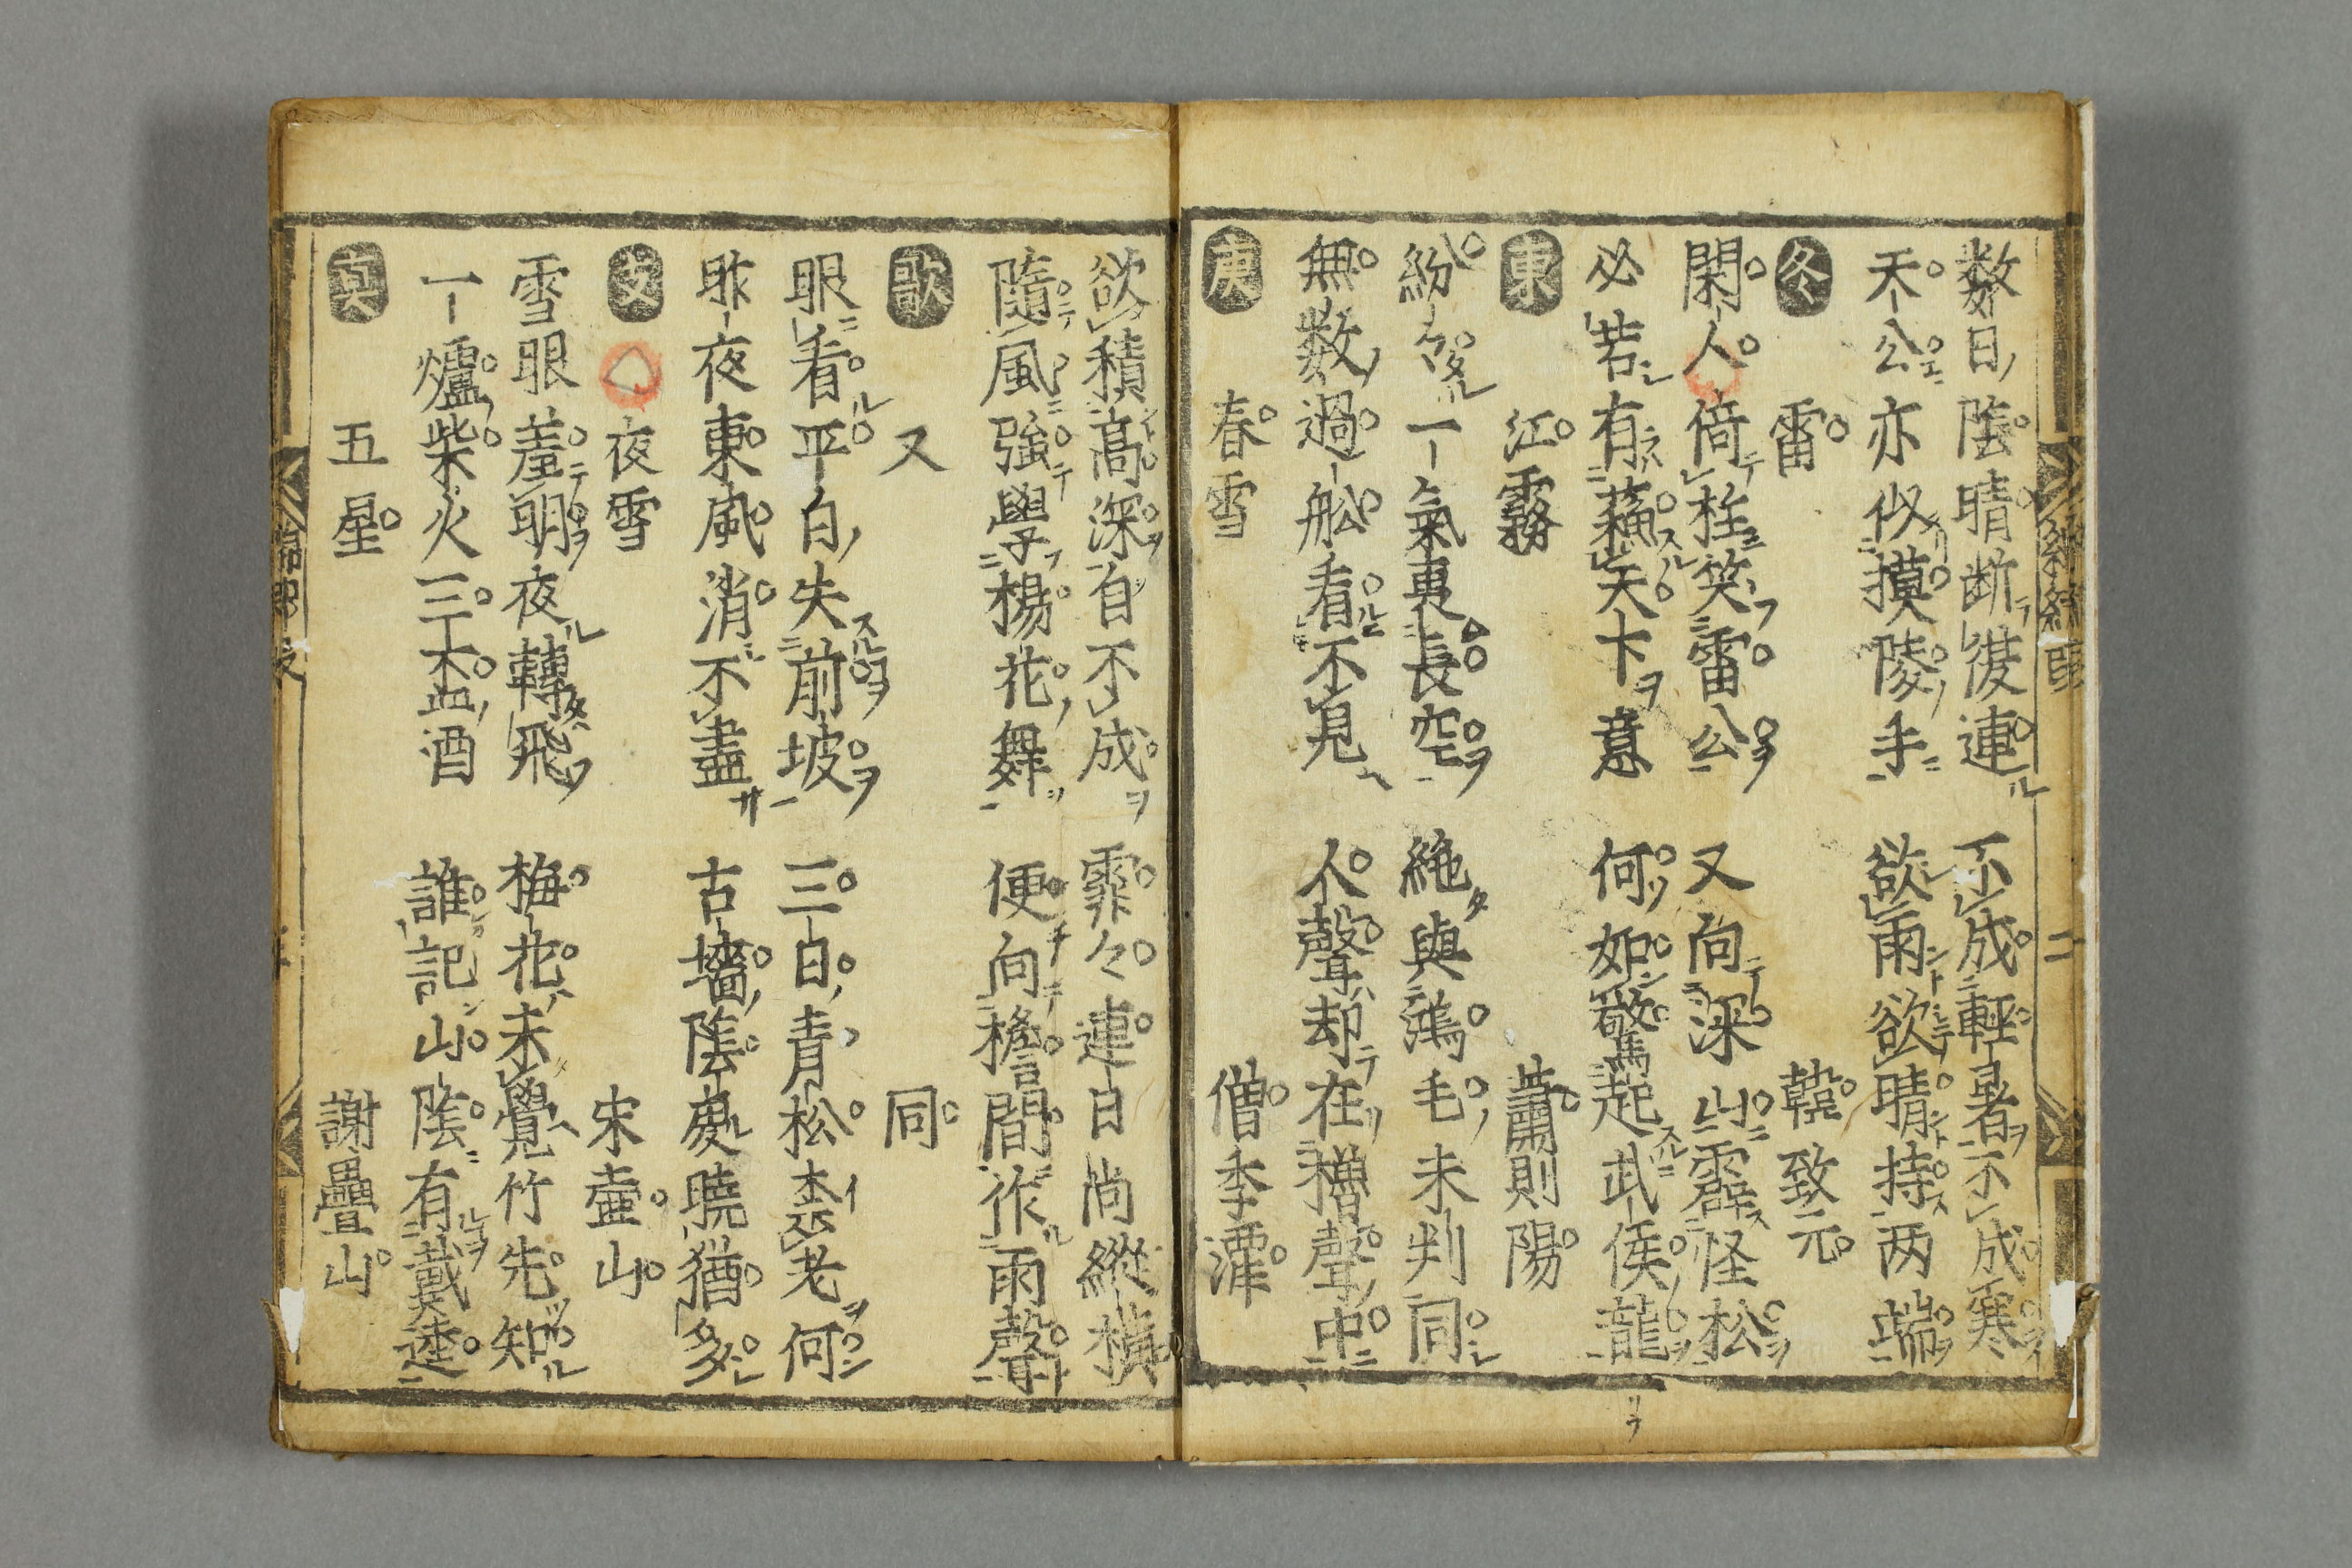 数日陰晴断復連　不成輕暑不成寒
天公亦似摸陵手　欲雨欲晴持两端
冬　雷　韓致元
閑人倚柱笑雷公　又向深山霹怪松
必若有蘓天下意　何如驚起武侯龍
東　江霧　蕭則陽
紛々一氣裹長空　絶與鴻毛未判同
無数過舩看不見　人聲却在櫓聲中
庚　春雪　僧季潭
欲積高深自不成　霏々連日尚縱横
隨風強學楊花舞　便向檐間作雨聲
歌　又　同
眼看平白失前坡　三日青松柰老何
昨夜東風消不盡　古墻陰處曉猶多
支　夜雪　宋壺山
雪眼羞明夜轉飛　梅花未覺竹先知
一爐柴火三盃酒　誰記山陰有戴逵
真　五星　謝疊山